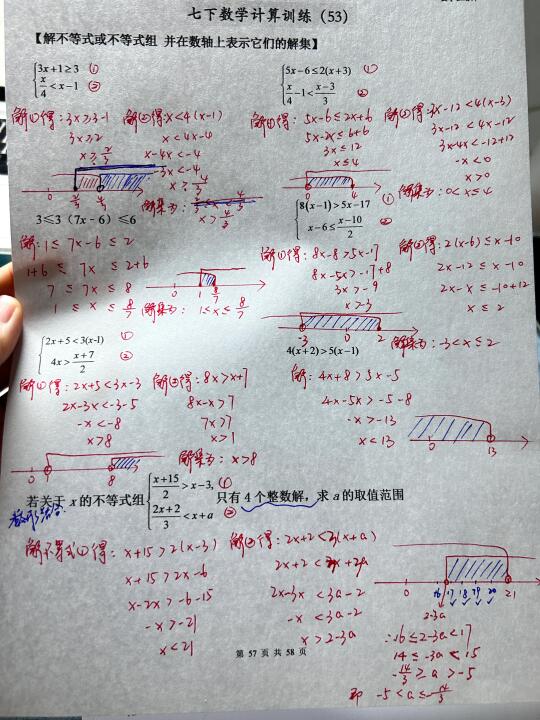 七下数学计算训练（53）
【解不等式或不等式组 并在数轴上表示它们的解集】
{3x+1≥3 ①
x/4<x-1 ②
解①得：3x≥3-1
3x≥2
x≥2/3
解②得：x<4(x-1)
x<4x-4
x-4x<-4
-3x<-4
x>4/3
0 2/3 4/3
x>4/3
{5x-6≤2(x+3) ①
x/4-1<(x-3)/3 ②
解①得：5x-6≤2x+6
5x-2x≤6+6
3x≤12
x≤4
解②得：3x-12<4(x-3)
3x-12<4x-12
3x-4x<-12+12
-x<0
x>0
0 4
解集为：0<x≤4
3≤3（7x-6）≤6
解：1≤7x-6≤2
1+6≤7x≤2+6
7≤7x≤8
1≤x≤8/7
0 1 8/7
解集为：1≤x≤8/7
{8(x-1)>5x-17 ①
x-6≤(x-10)/2 ②
解①得：8x-8>5x-17
8x-5x>-17+8
3x>-9
x>-3
解②得：2(x-6)≤x-10
2x-12≤x-10
2x-x≤-10+12
x≤2
-3 0 2
解集为：-3<x≤2
{2x+5<3(x-1) ①
4x>(x+7)/2 ②
解①得：2x+5<3x-3
2x-3x<-3-5
-x<-8
x>8
解②得：8x>x+7
8x-x>7
7x>7
x>1
0 1 8
解集为：x>8
4(x+2)>5(x-1)
解：4x+8>5x-5
4x-5x>-5-8
-x>-13
x<13
0 13
若关于x的不等式组{(x+15)/2>x-3, ①
(2x+2)/3<x+a ②
只有4个整数解，求a的取值范围
数形结合：
解不等式①得：x+15>2(x-3)
x+15>2x-6
x-2x>-6-15
-x>-21
x<21
解②得：2x+2<3(x+a)
2x+2<3x+3a
2x-3x<3a-2
-x<3a-2
x>2-3a
0 16 17 18 19 20 21
2-3a
∴16≤2-3a<17
14≤-3a<15
-14/3≥a>-5
即 -5<a≤-14/3
第 57 页 共 58 页